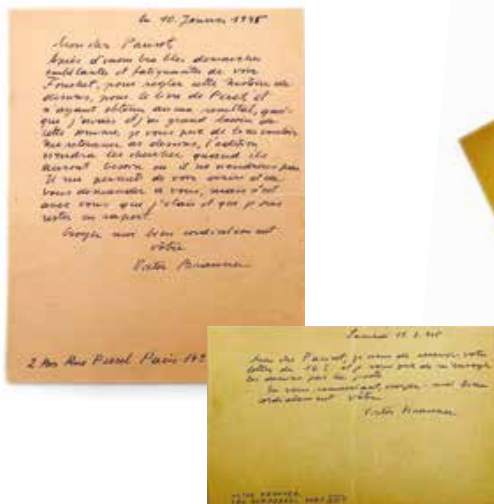 le 10. Janvier 1948
Mon cher Parisot,
Après d'innombrables démarches
et fatiguantes de voir
Fouchet, pour régler cette histoire de
dessins, pour le livre de Peret et
n'ayant obtenu aucun resultat, quoi-
que j'avais et j'ai grand besoin de
cette somme, je vous prie de bien vouloir
me retourner ces dessins, l'édition
viendra les chercher quand ils
auront besoin ou il ne viendrons pas
Il me permet de vous
vous demander à vous, mais c'est
avec vous que j'étais et que je suis
rester en raport.
Croyez moi bien cordialement
vôtre
Victor Brauner
2 bis Rue Perrel Paris 14e
Samedi
Mon cher Parisot, je viens de recevoir votre
lettre du et je vous prie de m'envoyer
les dessins par la poste
En vous remerciant, croyez-moi bien
cordialement vôtre
Victor Brauner
VICTOR BRAUNER